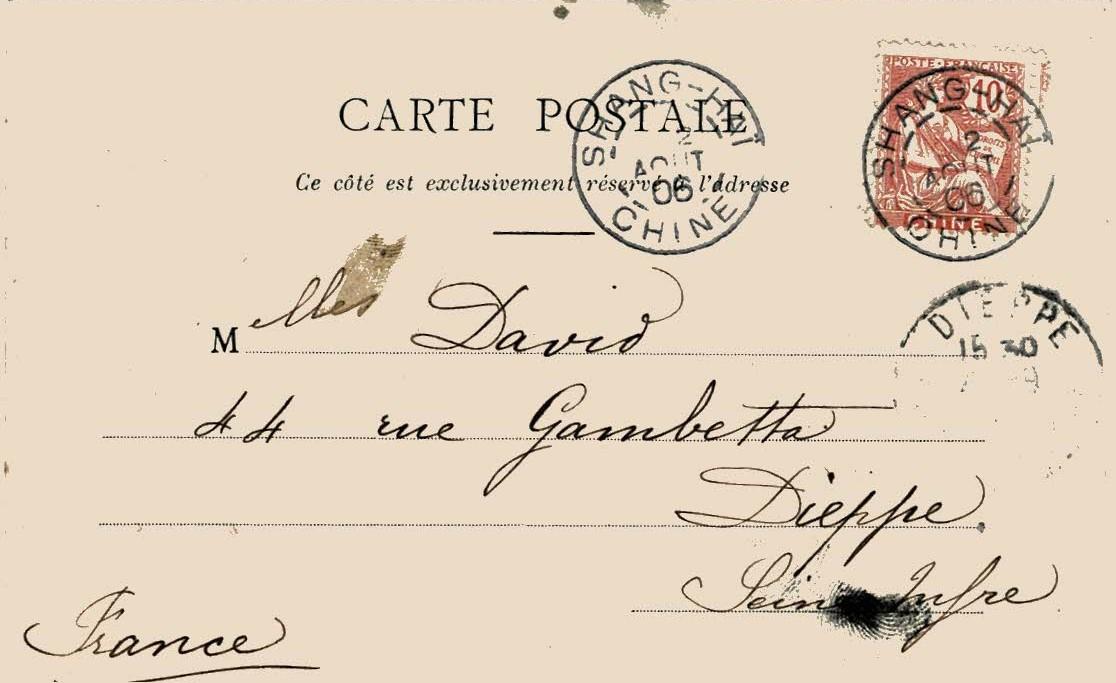 CARTE POSTALE
Ce côté est exclusivement réservé à l'adresse
SHANG-HAÏ
2
AOUT
06
CHINE
POSTE FRANÇAISE
10
CHINE
SHANG-HAÏ
2
AOUT
06
CHINE
DIEPPE
15 30
Melles David
44 rue Gambetta
Dieppe.
Seine Infre
France